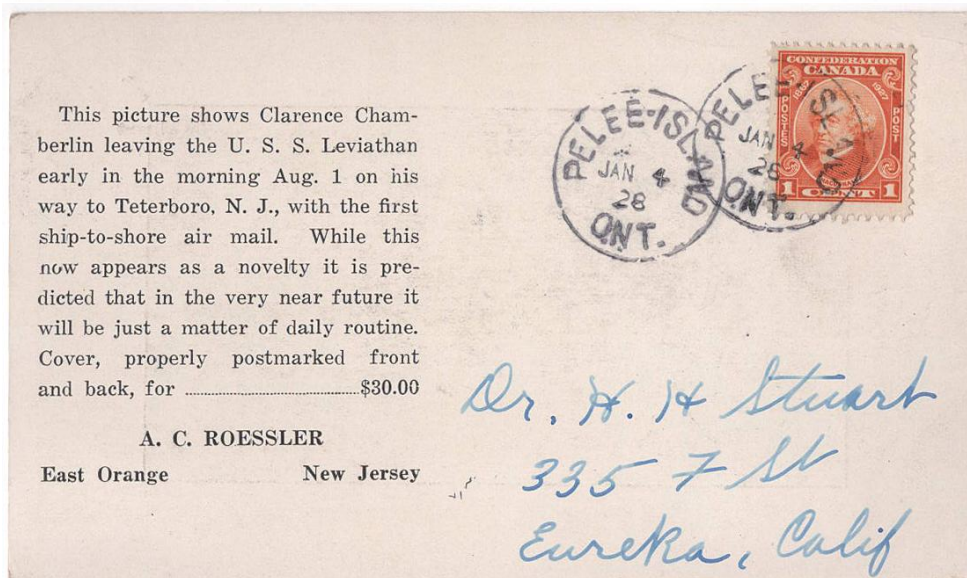 This picture shows Clarence Cham-
berlin leaving the U. S. S. Leviathan
early in the morning Aug. 1 on his
way to Teterboro, N. J., with the first
ship-to-shore air mail. While this
now appears as a novelty it is pre-
dicted that in the very near future it
will be just a matter of daily routine.
Cover, properly postmarked front
and back, for ........................................ $30.00
A. C. ROESSLER
East Orange New Jersey
PELEE-ISLAND
JAN 4
28
ONT.
PELEE-ISLAND
JAN 4
28
ONT.
CONFEDERATION
CANADA
1867 1927
POSTES POST
1 CENT 1
Dr. H. H Stuart
335 F St
Eureka, Calif